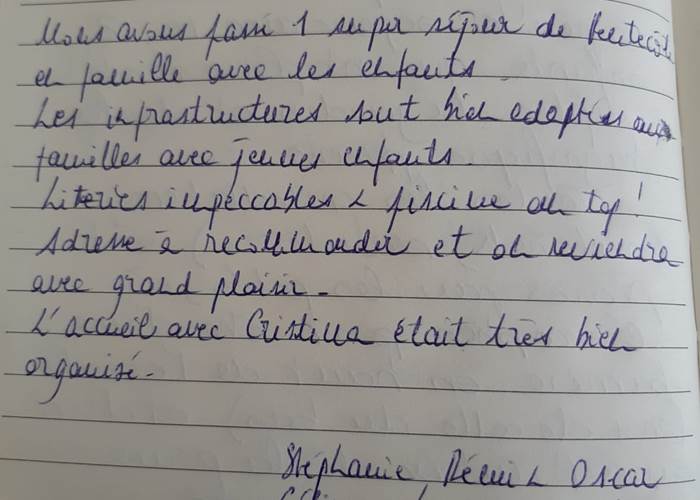 Nous avons passé 1 super séjour de Pentecôte
en famille avec les enfants
Les infrastructures sont bien adaptées aux
familles avec jeunes enfants.
Literies impeccables & piscine au top !
Adresse à recommander et on reviendra
avec grand plaisir.
L'accueil avec Cristina était très bien
organisé.
Stéphanie, Rémi & Oscar